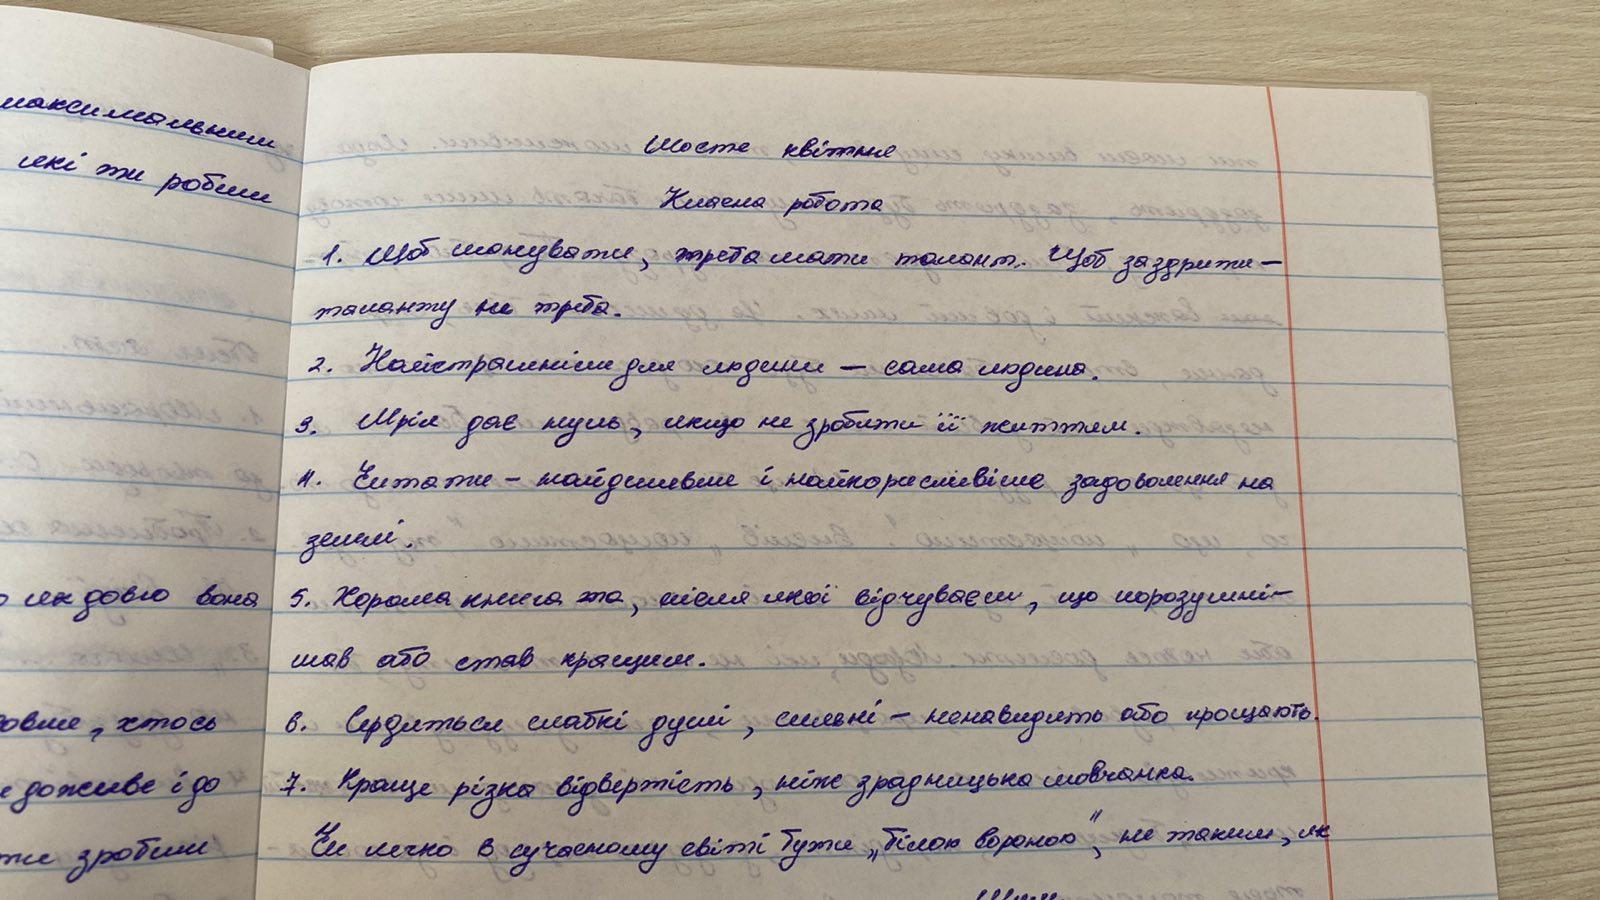 максимальним
які ти робиш
о як довго вона
довше, хтось
е доживе і до
ти зробиш
Шосте квітня
Класна робота
1. Щоб шанувати, треба мати талант. Щоб заздрити –
таланту не треба.
2. Найстрашніше для людини – сама людина.
3. Мрія дає нуль, якщо не зробити її життям.
4. Читати – найдешевше і найкорисливіше задоволення на
землі.
5. Хороша книга та, після якої відчуваєш, що порозумні-
шав або став кращим.
6. Сердяться слабкі душі, сильні – ненавидять або прощають.
7. Краще різка відвертість, ніж зрадницька мовчанка.
Чи легко в сучасному світі бути „білою вороною", не таким, як